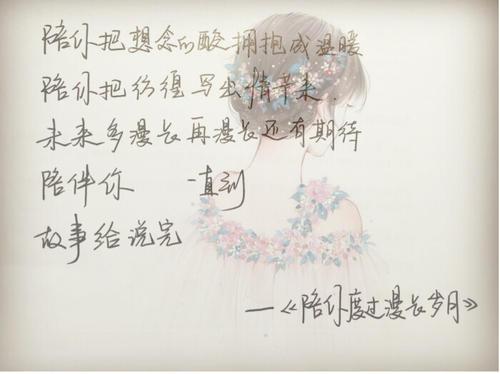 陪你把想念的酸拥抱成温暖
陪你把彷徨写出情节来
未来多漫长再漫长还有期待
陪伴你 一直到
故事给说完
—《陪你度过漫长岁月》